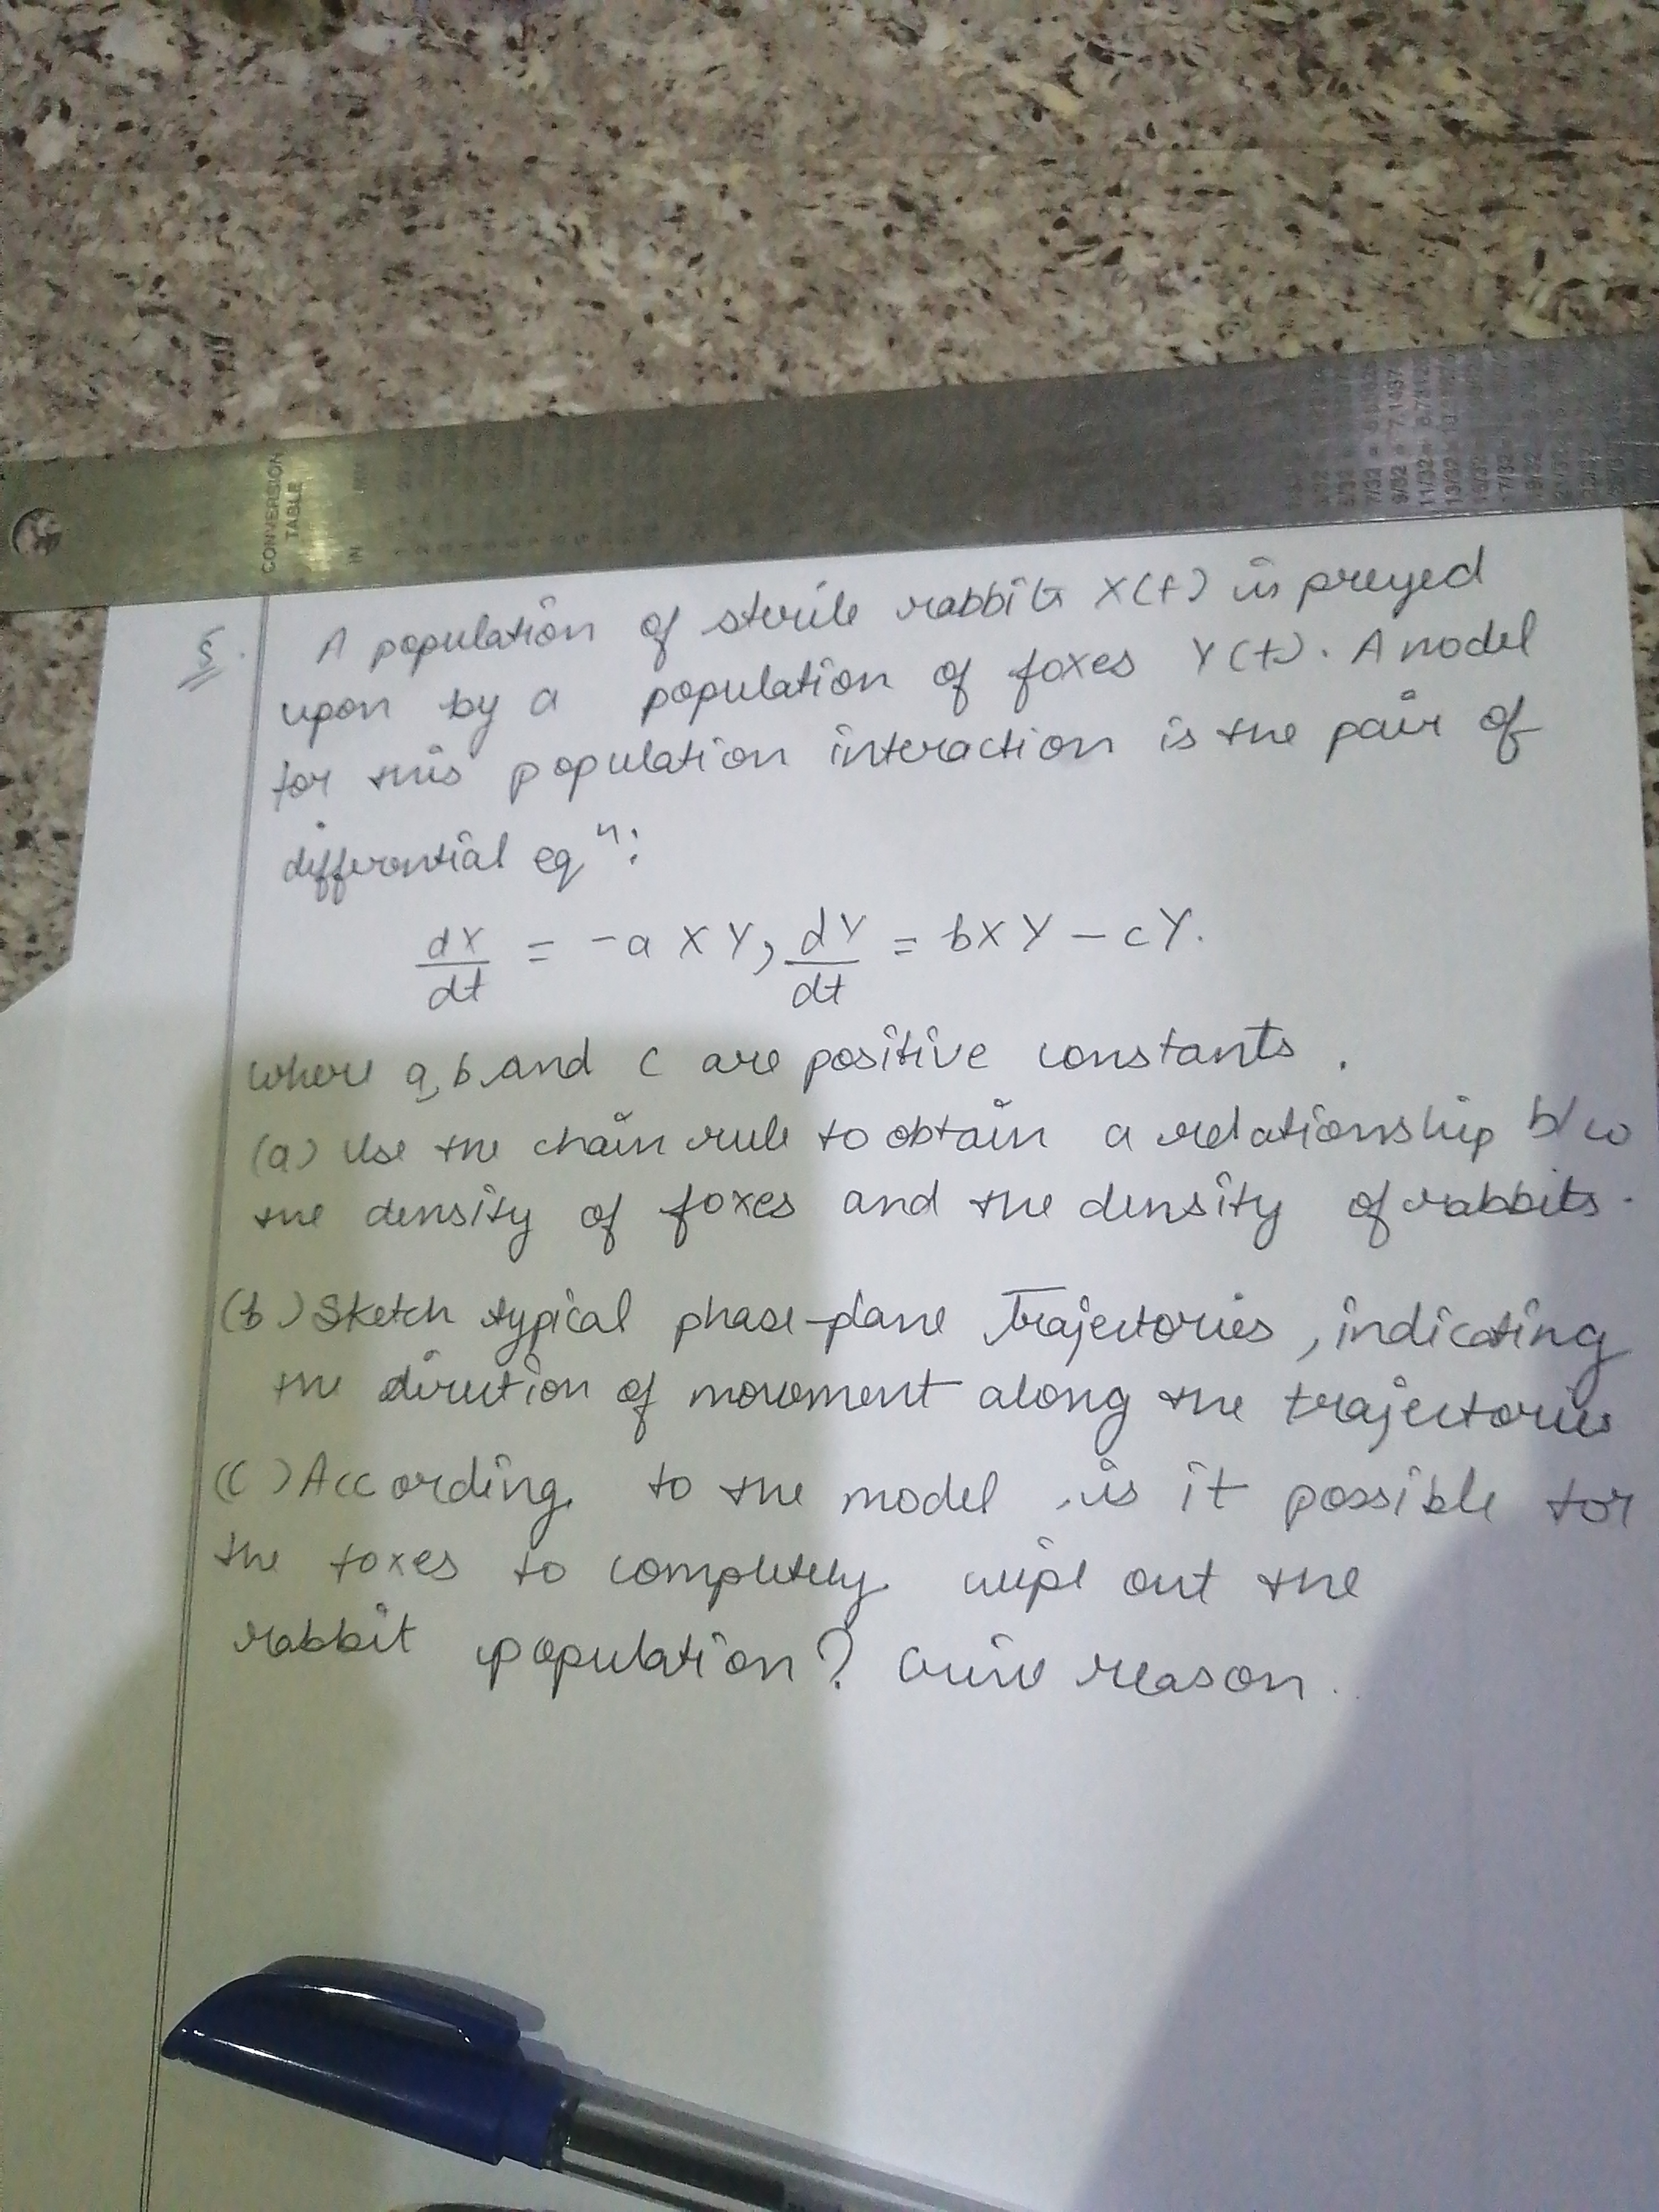 CONVERSION
TABLE
IN MM
7/32 = 
9/32 = 7.1437
11/32 = 
13/32 = 
17/32 = 
5. A population of sterile rabbits X(t) is preyed
upon by a population of foxes Y(t). A model
for this population interaction is the pair of
differential eqⁿ:
dX/dt = -aXY, dY/dt = bXY - cY.
where a, b and c are positive constants.
(a) Use the chain rule to obtain a relationship b/w
the density of foxes and the density of rabbits.
(b) Sketch typical phase-plane Trajectories, indicating
the direction of movement along the trajectories
(c) According to the model, is it possible for
the foxes to completely wipe out the
rabbit population? Give reason.